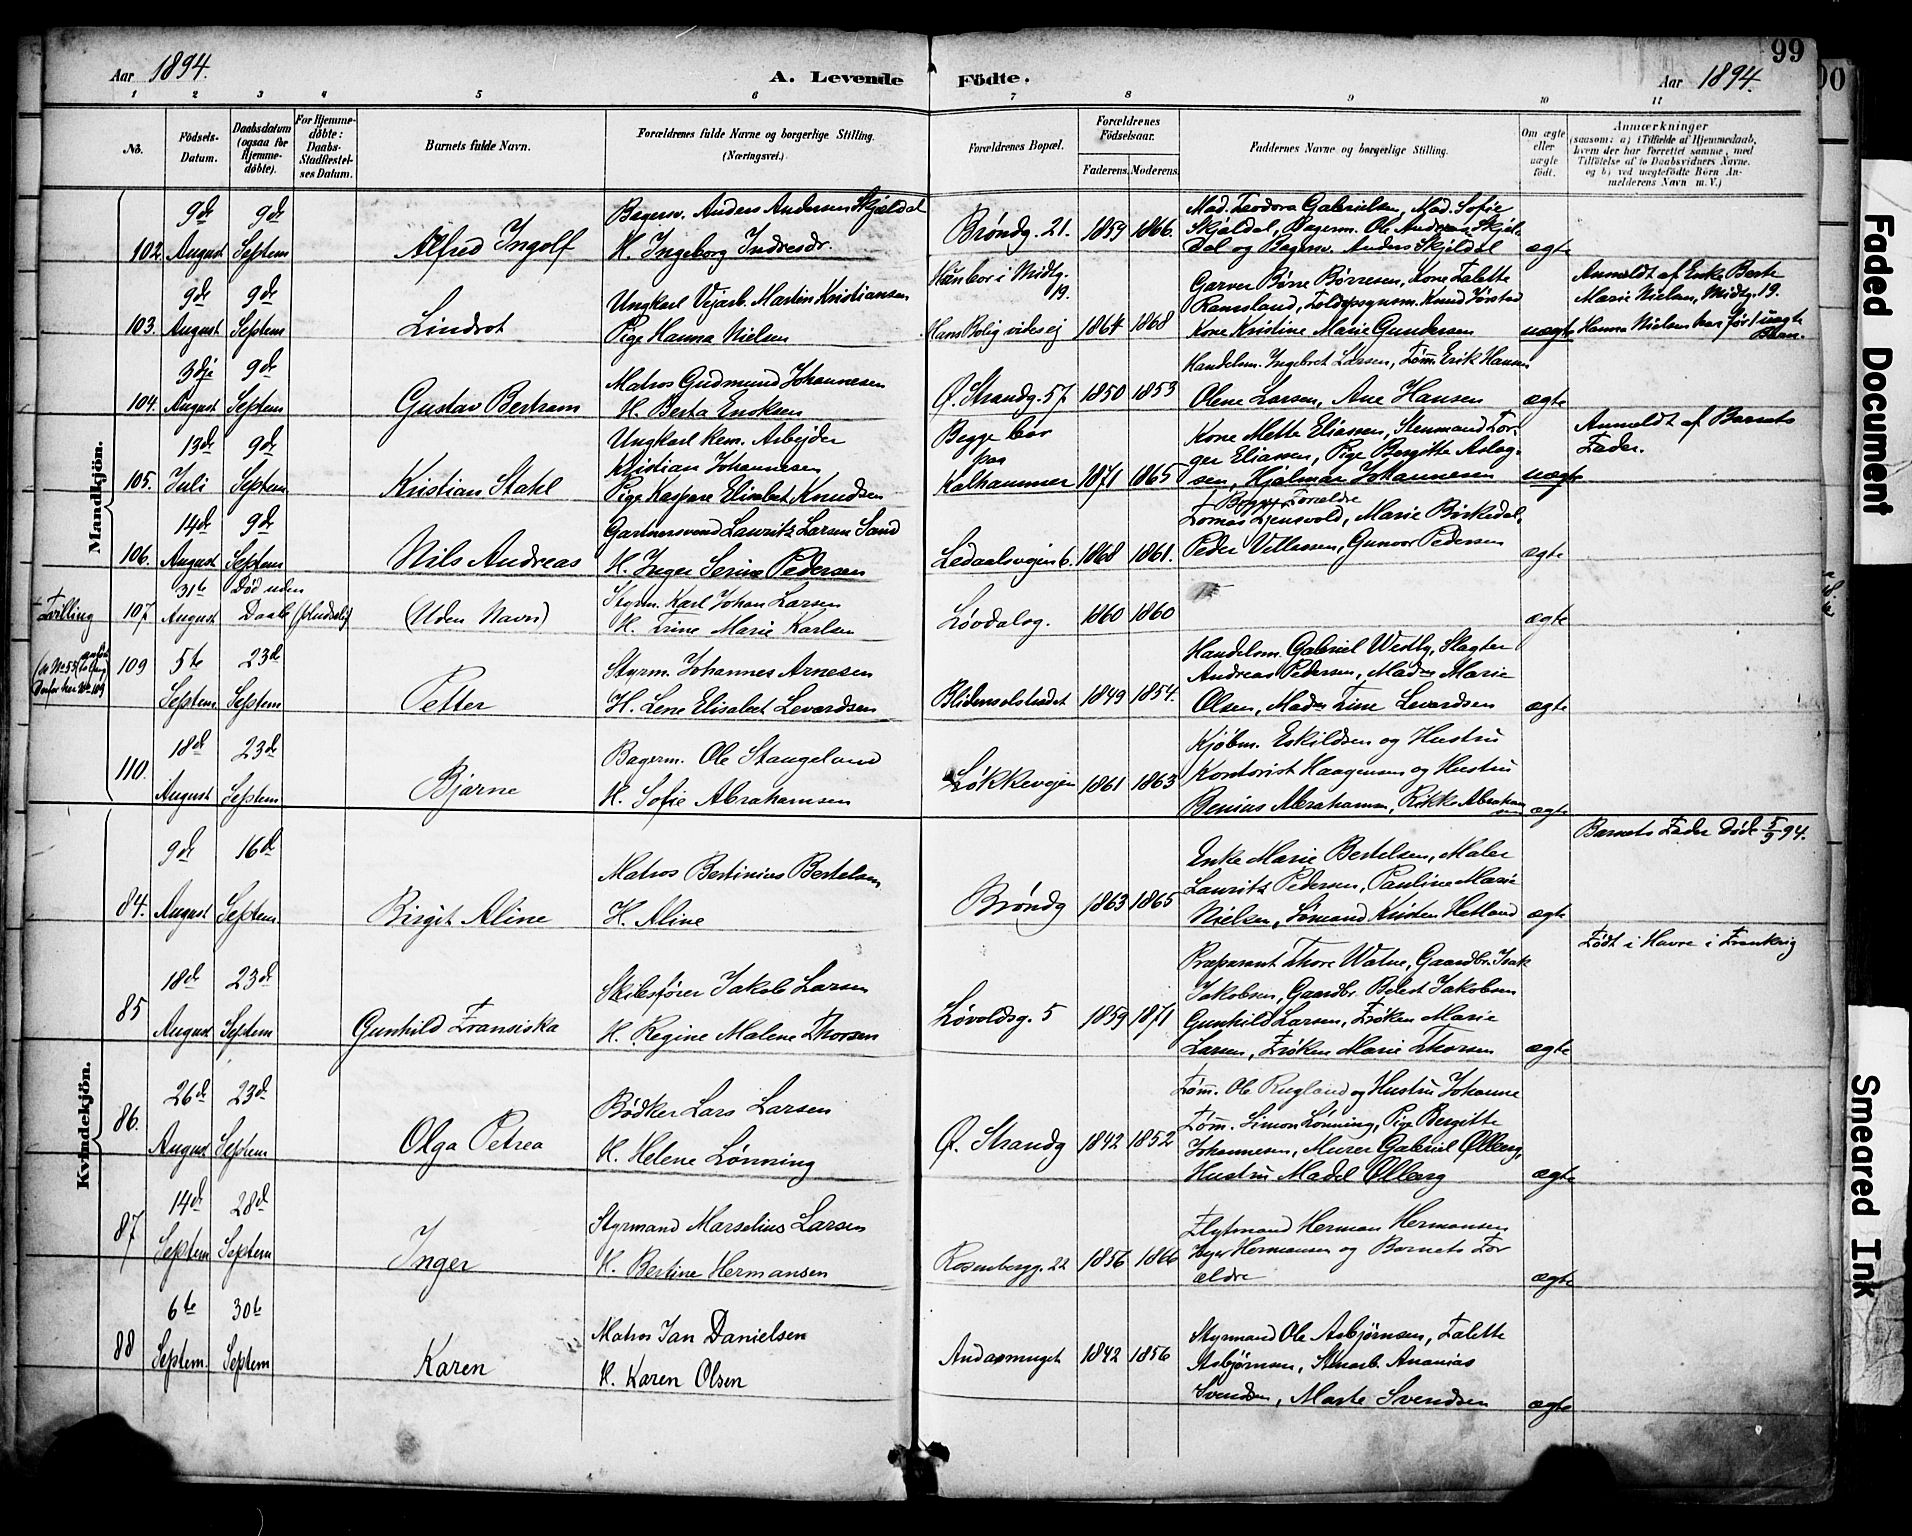 99
Aar 1894.
A. Levende Födte.
Aar 1894.
1 2 3 4 5 6 7 8 9 10 11
No.
Födsels-Datum.
Daabsdatum (ogsaa for Hjemme-döbte).
For Hjemme-döbte: Daabs-Stadfæstel-ses Datum.
Barnets fulde Navn.
Forældrenes fulde Navne og borgerlige Stilling. (Næringsvei.)
Forældrenes Bopæl.
Forældrenes Födselsaar.
Faderens. Moderens.
Faddernes Navne og borgerlige Stilling.
Om ægte eller uægte födt.
Anmærkninger
(saasom: a) i Tilfælde af Hjemmedaab, hvem der har forrettet samme, med Tilföielse af to Daabsvidners Navne. og b) ved uægtefödte Börn An-melderens Navn m. V.)
Mandkjön.
102. 9de August
9de Septem
Alfred Ingolf
Bagersv. Anders Andersen Skjældal
H. Ingeborg Indresdr.
Brøndg. 21.
1859 1866.
Mad. Teodora Gabrielsen, Mad. Sofie
Skjøldal, Bagerm. Ole Andreas Skjøl-
dal og Bagersv. Anders Skjøldal
ægte
103. 9de August
9de Septem
Lindrot
Ungkarl Vejarb. Martin Kristiansen
Pige Hanna Nielsen
Hun bor i Midtg. 19.
Hans Bolig vides ej
1864 1868
Garver Børre Børresen, Kone Talette
Ramsland, Toldopsynsm. Knud Jørstad
Kone Kristine Marie Gundersen
uægte
Anmeldt af Enke Berte
Marie Nielsen, Midtg. 19.
Hanna Nielsen har født 1 uægte
Barn.
104. 3die August
9de Septem
Gustav Bertram
Matros Gudmund Johannesen
H. Berta Enoksen
Ø. Strandg. 57
1850 1853
Handelsm. Ingebret Larsen, Tømm. Erik Hansen
Olene Larsen, Ane Hansen
ægte
105. 13de Juli
9de Septem
Kristian Stahl
Ungkarl kem. Arbejder
Kristian Johannesen
Pige Kaspare Elisabet Knudsen
Begge bor
paa
Kalhammer
1871 1865
Kone Mette Eliassen, Stenmand Tor-
ger Eliassen, Pige Bergitte Aslag-
sen, Hjalmar Johannesen
Begge Forældre
uægte
Anmeldt af Barnets
Fader.
106. 14de August
9de Septem
Nils Andreas
Gartnersvend Lauritz Larsen Sand
H. Inger Serine Pedersen
Ledaalsvejen 6.
1868 1861.
Tomas Tjensvold, Marie Birkedal,
Peder Villassen, Gunvor Pedersen
ægte
Tvilling
107 31te August
Død uden Daab
(Uden Navn)
Styrm. Karl Johan Larsen
H. Trine Marie Karlsen
Løvdalsg.
1860 1860
ægte
109 5te Septem
23de Septem
Petter
Styrm. Johannes Arnesen
H. Lene Elisabet Levardsen
Blidensolstrædet
1849 1854.
Handelsm. Gabriel Westby, Slagter
Andreas Pedersen, Madm Marie
Olsen, Madm Trine Levardsen
ægte
110. 18de August
23de Septem
Bjarne
Bagerm. Ole Stangeland
H. Sofie Abrahamsen
Løkkevejen
1861 1863
Kjøbm. Eskildsen og Hustru
Kontorist Haagensen og Hustru
Benius Abrahamsen, Rikke Abraham
sen
ægte
Kvindekjön.
84. 9de August
16de Septem
Birgit Aline
Matros Bertinius Bertelsen
H. Aline
Brøndg
1863 1865
Enke Marie Bertelsen, Maler
Lauritz Pedersen, Pauline Marie
Nielsen, Sømand Kristen Hetland
ægte
Barnets Fader døde 5/9 94.
85 18de August
23de Septem
Gunhild Fransiska
Skibsfører Jakob Larsen
H. Regine Malene Thorsen
Løvoldsg. 5
1859 1871
Præparant Thore Watne, Gaardbr. Isak
Jakobsen, Gaardbr. Berest Jakobsen
Gunhild Larsen, Frøken Marie
Larsen, Frøken Marie Thorsen
ægte
Født i Havre i Frankrig
86. 26de August
23de Septem
Olga Petrea
Bødker Lars Larsen
H. Helene Lønning
Ø. Strandg
1842 1852
Tømm. Ole Rugland og Hustru Johanne
Tømm. Simon Lønning, Pige Bergitte
Johannesen, Murer Gabriel Ølberg,
Hustru Madel Ølberg
ægte
87 14de Septem
28de Septem
Inger
Styrmand Marselius Larsen
H. Bertine Hermansen
Rosenbergg. 22
1856 1866
Flytmand Herman Hermansen
Inger Hermansen og Barnets For
ældre
ægte
88 6te Septem.
30te Septem
Karen
Matros Jan Danielsen
H. Karen Olsen
Andasmuget
1842 1856
Styrmand Ole Asbjørnsen, Talette
Asbjørnsen, Stuarb. Ananias
Svendsen, Marte Svendsen
ægte
Faded Document
Smeared Ink